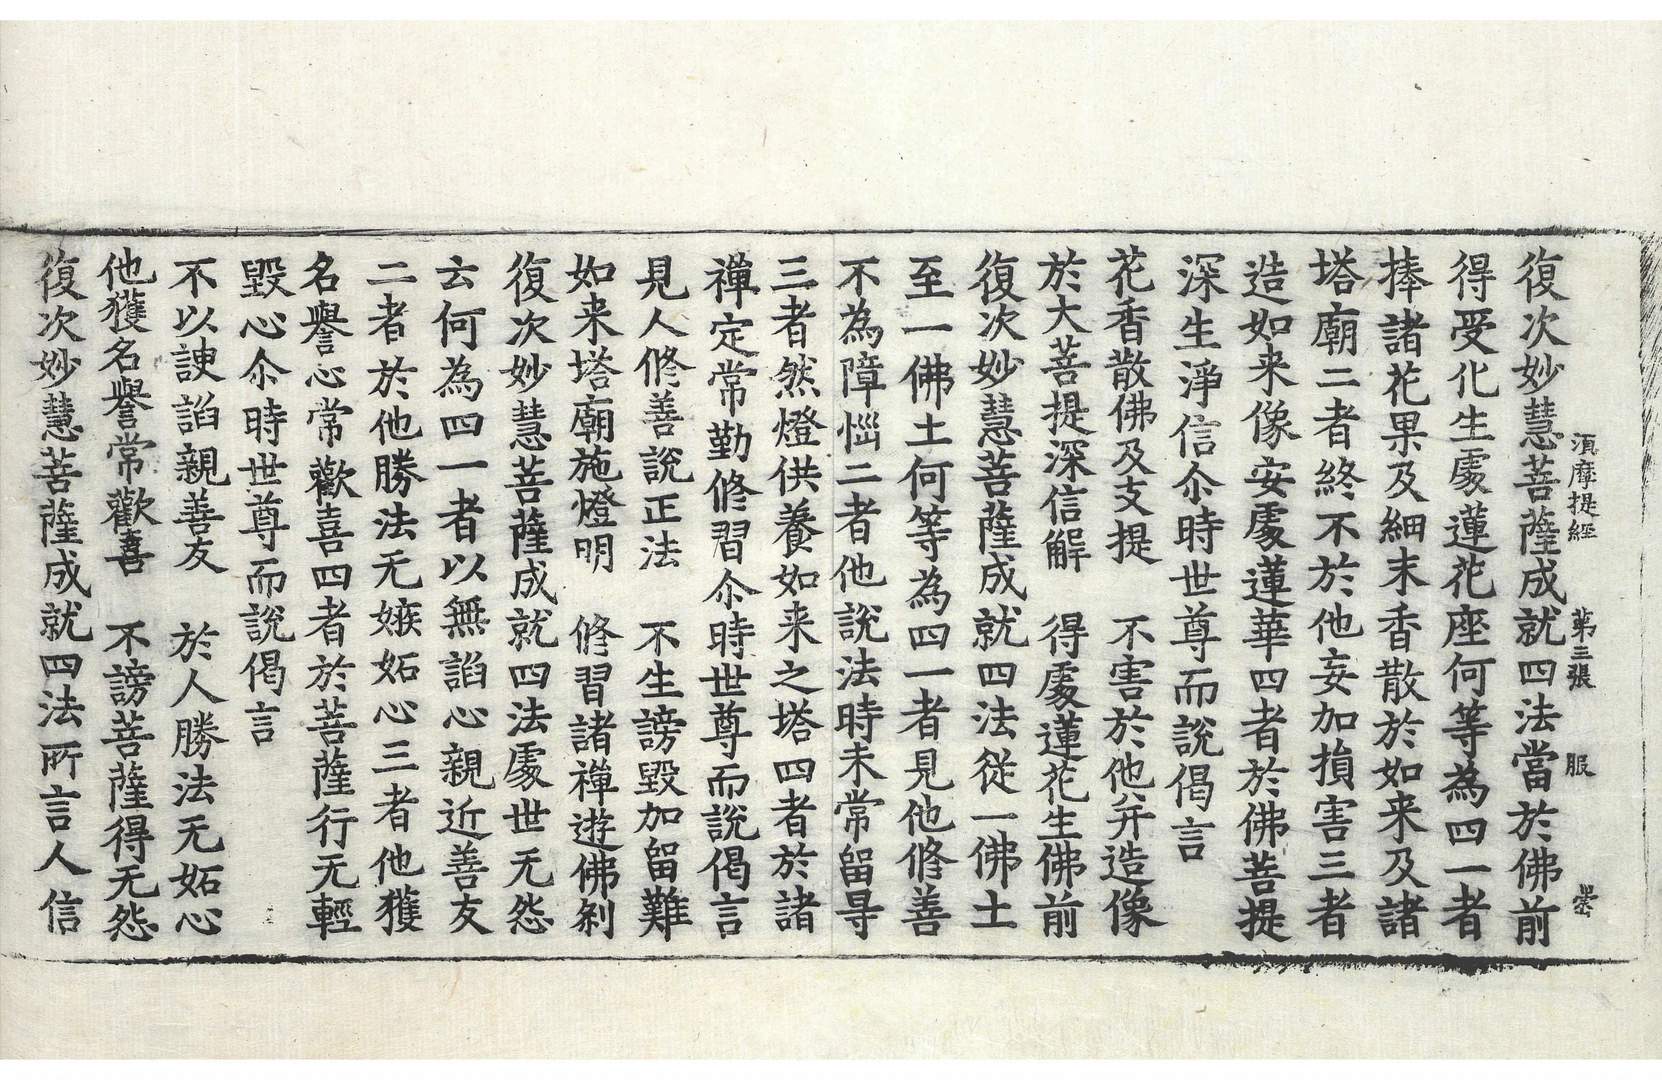 須摩提經　第三張　服
復次妙慧菩薩成就四法當於佛前
得受化生處蓮花座何等為四一者
捧諸花果及細末香散於如来及諸
塔廟二者終不於他妄加損害三者
造如来像安處蓮華四者於佛菩提
深生淨信尒時世尊而說偈言
花香散佛及支提　不害於他并造像
於大菩提深信解　得處蓮花生佛前
復次妙慧菩薩成就四法從一佛土
至一佛土何等為四一者見他修善
不為障惱二者他說法時未常留㝵
三者然燈供養如来之塔四者於諸
禪定常勤修習尒時世尊而說偈言
見人修善說正法　不生謗毀加留難
如来塔廟施燈明　修習諸禪遊佛剎
復次妙慧菩薩成就四法處世无怨
云何為四一者以無諂心親近善友
二者於他勝法无嫉妬心三者他獲
名譽心常歡喜四者於菩薩行无輕
毀心尒時世尊而說偈言
不以諛諂親善友　於人勝法无妬心
他獲名譽常歡喜　不謗菩薩得无怨
復次妙慧菩薩成就四法所言人信